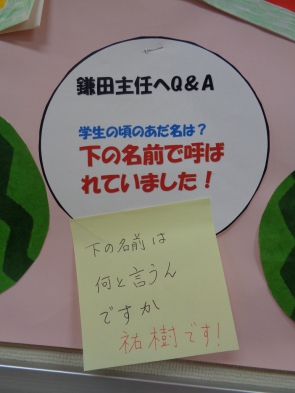 鎌田主任へQ&A
学生の頃のあだ名は?
下の名前で呼ば
れていました!
下の名前は
何と言うん
ですか
祐樹です!